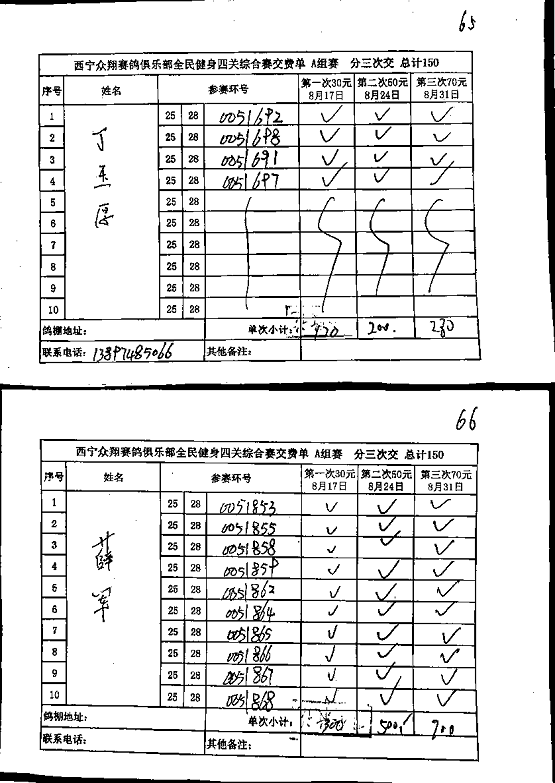 65
西宁众翔赛鸽俱乐部全民健身四关综合赛交费单 A组赛 分三次交 总计150
序号 姓名 参赛环号 第一次30元 8月17日 第二次50元 8月24日 第三次70元 8月31日
1 25 28 0051692 ✓ ✓ ✓
2 25 28 0051698 ✓ ✓ ✓
3 25 28 0051691 ✓ ✓ ✓
4 25 28 0051697 ✓ ✓ ✓
5 25 28
6 25 28
7 25 28
8 25 28
9 25 28
10 25 28
鸽棚地址: 单次小计: 200. 280
联系电话: 13897485066 其他备注:
66
西宁众翔赛鸽俱乐部全民健身四关综合赛交费单 A组赛 分三次交 总计150
序号 姓名 参赛环号 第一次30元 8月17日 第二次50元 8月24日 第三次70元 8月31日
薛军
1 25 28 0051853 ✓ ✓ ✓
2 25 28 0051855 ✓ ✓ ✓
3 25 28 0051858 ✓ ✓ ✓
4 25 28 0051859 ✓ ✓ ✓
5 25 28 0051862 ✓ ✓ ✓
6 25 28 0051864 ✓ ✓ ✓
7 25 28 0051865 ✓ ✓ ✓
8 25 28 0051866 ✓ ✓ ✓
9 25 28 0051867 ✓ ✓ ✓
10 25 28 0051868 ✓ ✓ ✓
鸽棚地址: 单次小计: 300 500 700
联系电话: 其他备注: